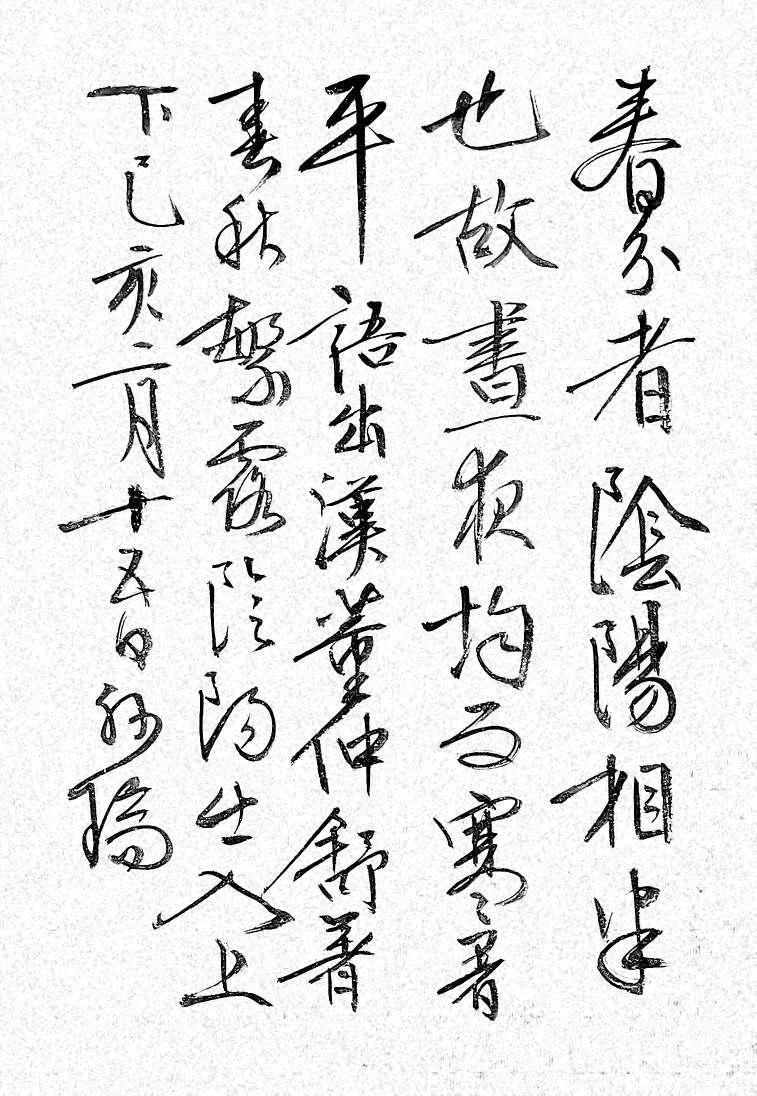 春分者陰陽相半
也故晝夜均而寒暑
平語出漢董仲舒著
春秋繁露陰陽出入上
下己亥二月十五日